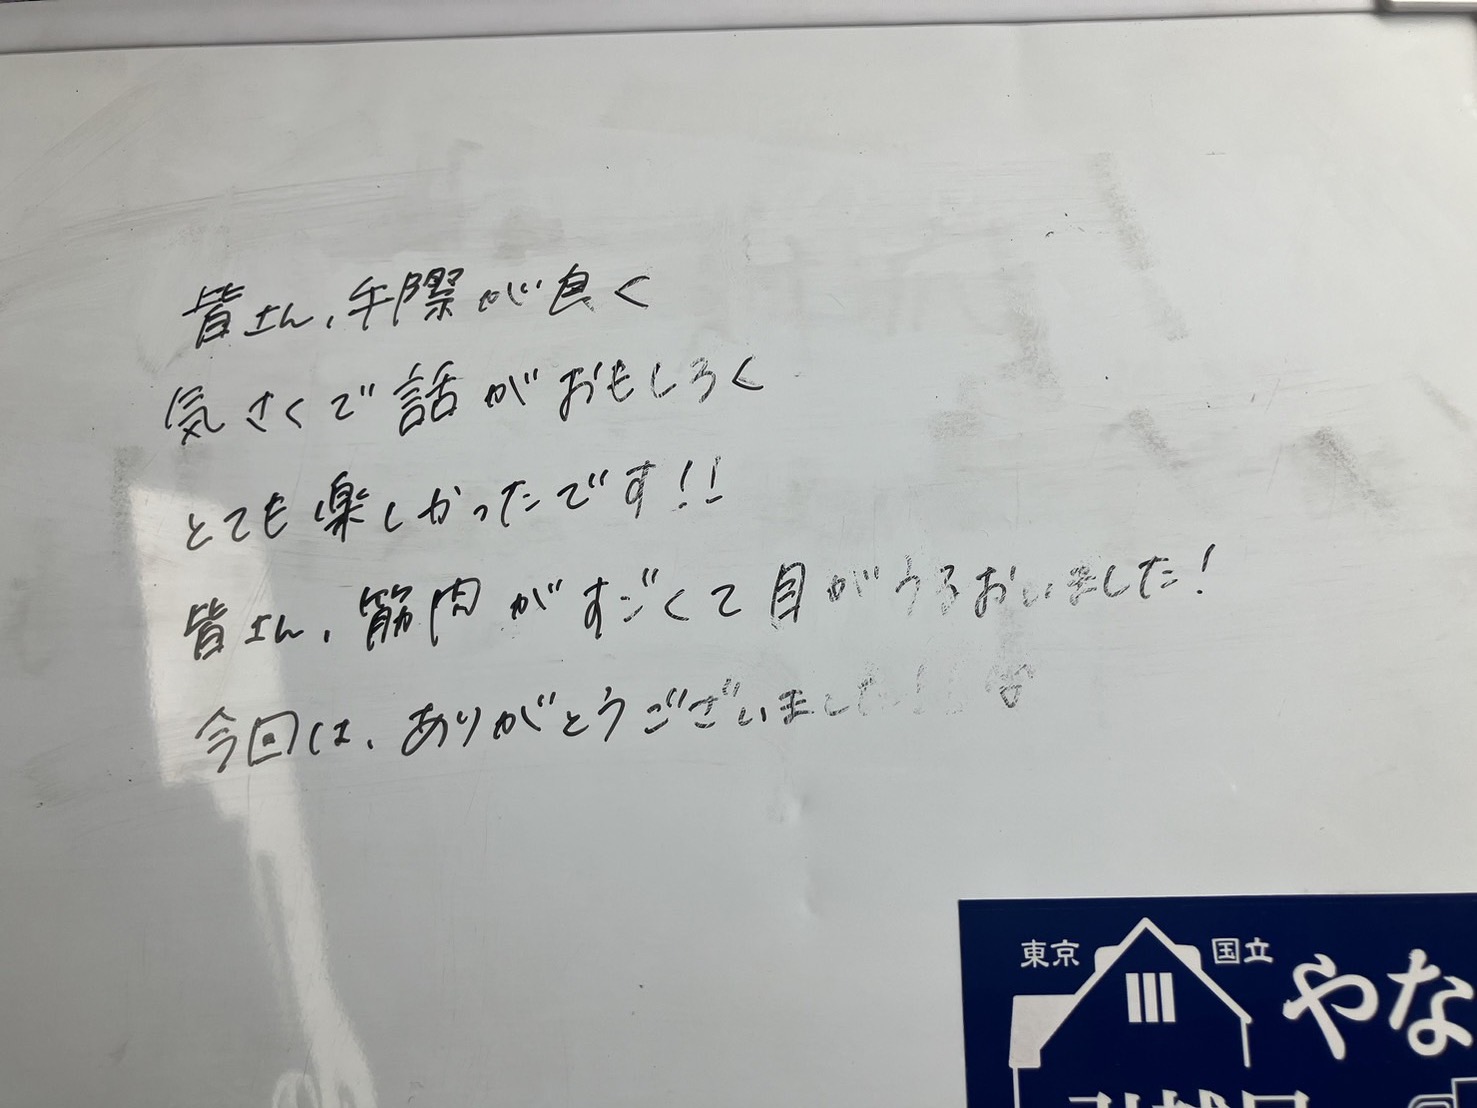 皆さん、手際が良く
気さくで話がおもしろく
とても楽しかったです!!
皆さん、筋肉がすごくて目がうるおいました!
今回は、ありがとうございました!!
東京 国立 やな